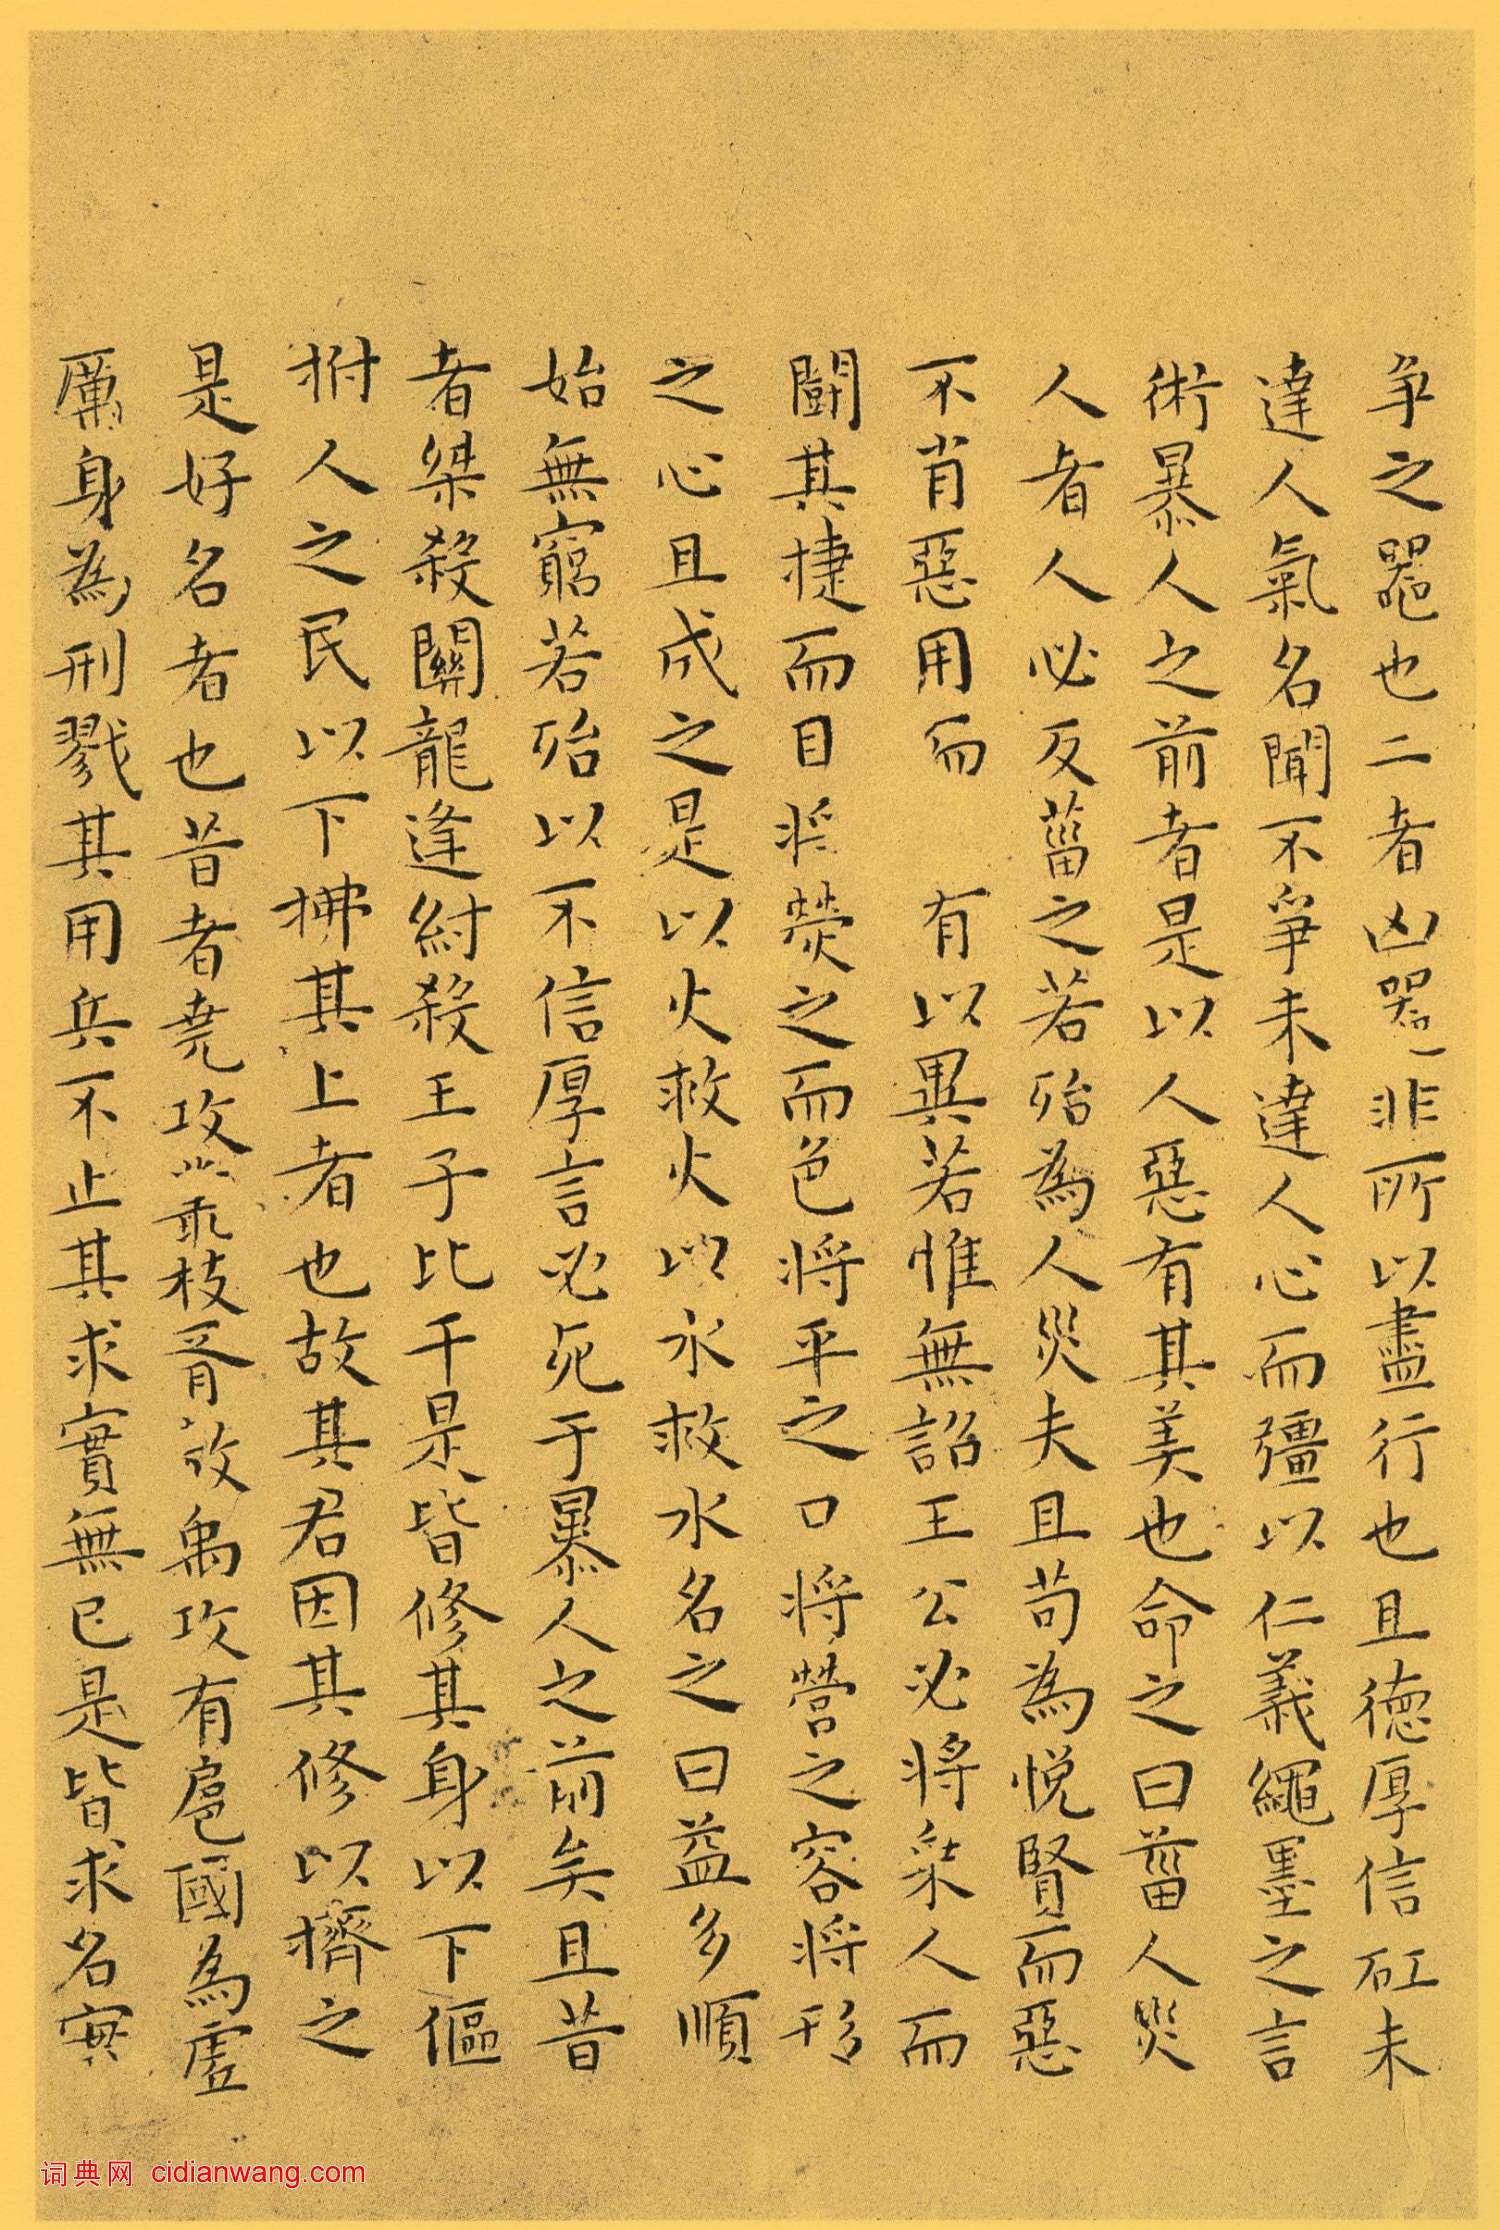 争之器也二者凶器非所以盡行也且德厚信矼未
達人氣名聞不爭未達人心而彊以仁義繩墨之言
術暴人之前者是以人惡有其美也命之曰菑人災
人者人必反菑之若殆為人災夫且苟為悅賢而惡
不肖惡用而有以異若惟無詔王公必將乘人而
鬭其捷而目将熒之而色将平之口将營之容将形
之心且成之是以火救火以水救水名之曰益多順
始無窮若殆以不信厚言必死于暴人之前矣且昔
者桀殺關龍逢紂殺王子比干是皆修其身以下傴
拊人之民以下拂其上者也故其君因其修以擠之
是好名者也昔者堯攻叢枝胥敖禹攻有扈國為虛
厲身為刑戮其用兵不止其求實無已是皆求名實
词典网 cidianwang.com